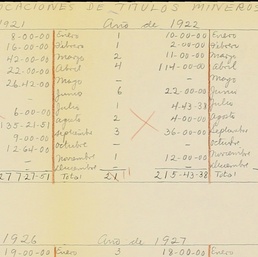 OCACIONES DE TITULOS MINEROS
1921 Año de 1922
8-00-00 Enero 1 10-00-00 Enero
16-00-00 Febrero 1 2-00-00 Febrero
42-00-00 Marzo 2 11-00-00 Marzo
22-00-00 Abril 4 114-00-00 Abril
26-42-00 Mayo — — Mayo
— Junio 6 22-00-00 Junio
Julio 1 4-43-38 Julio
6-00-00 Agosto 2 4-00-00 Agosto
135-21-51 Septiembre 3 36-00-00 Septiembre
9-00-00 Octubre — — Octubre
12-64-00 Noviembre 1 12-00-00 Noviembre
— Diciembre — — Diciembre
277 27-51 Total 21 215-43-38 Total
1926 Año de 1927
19-00-00 Enero 3 18-00-00 Enero